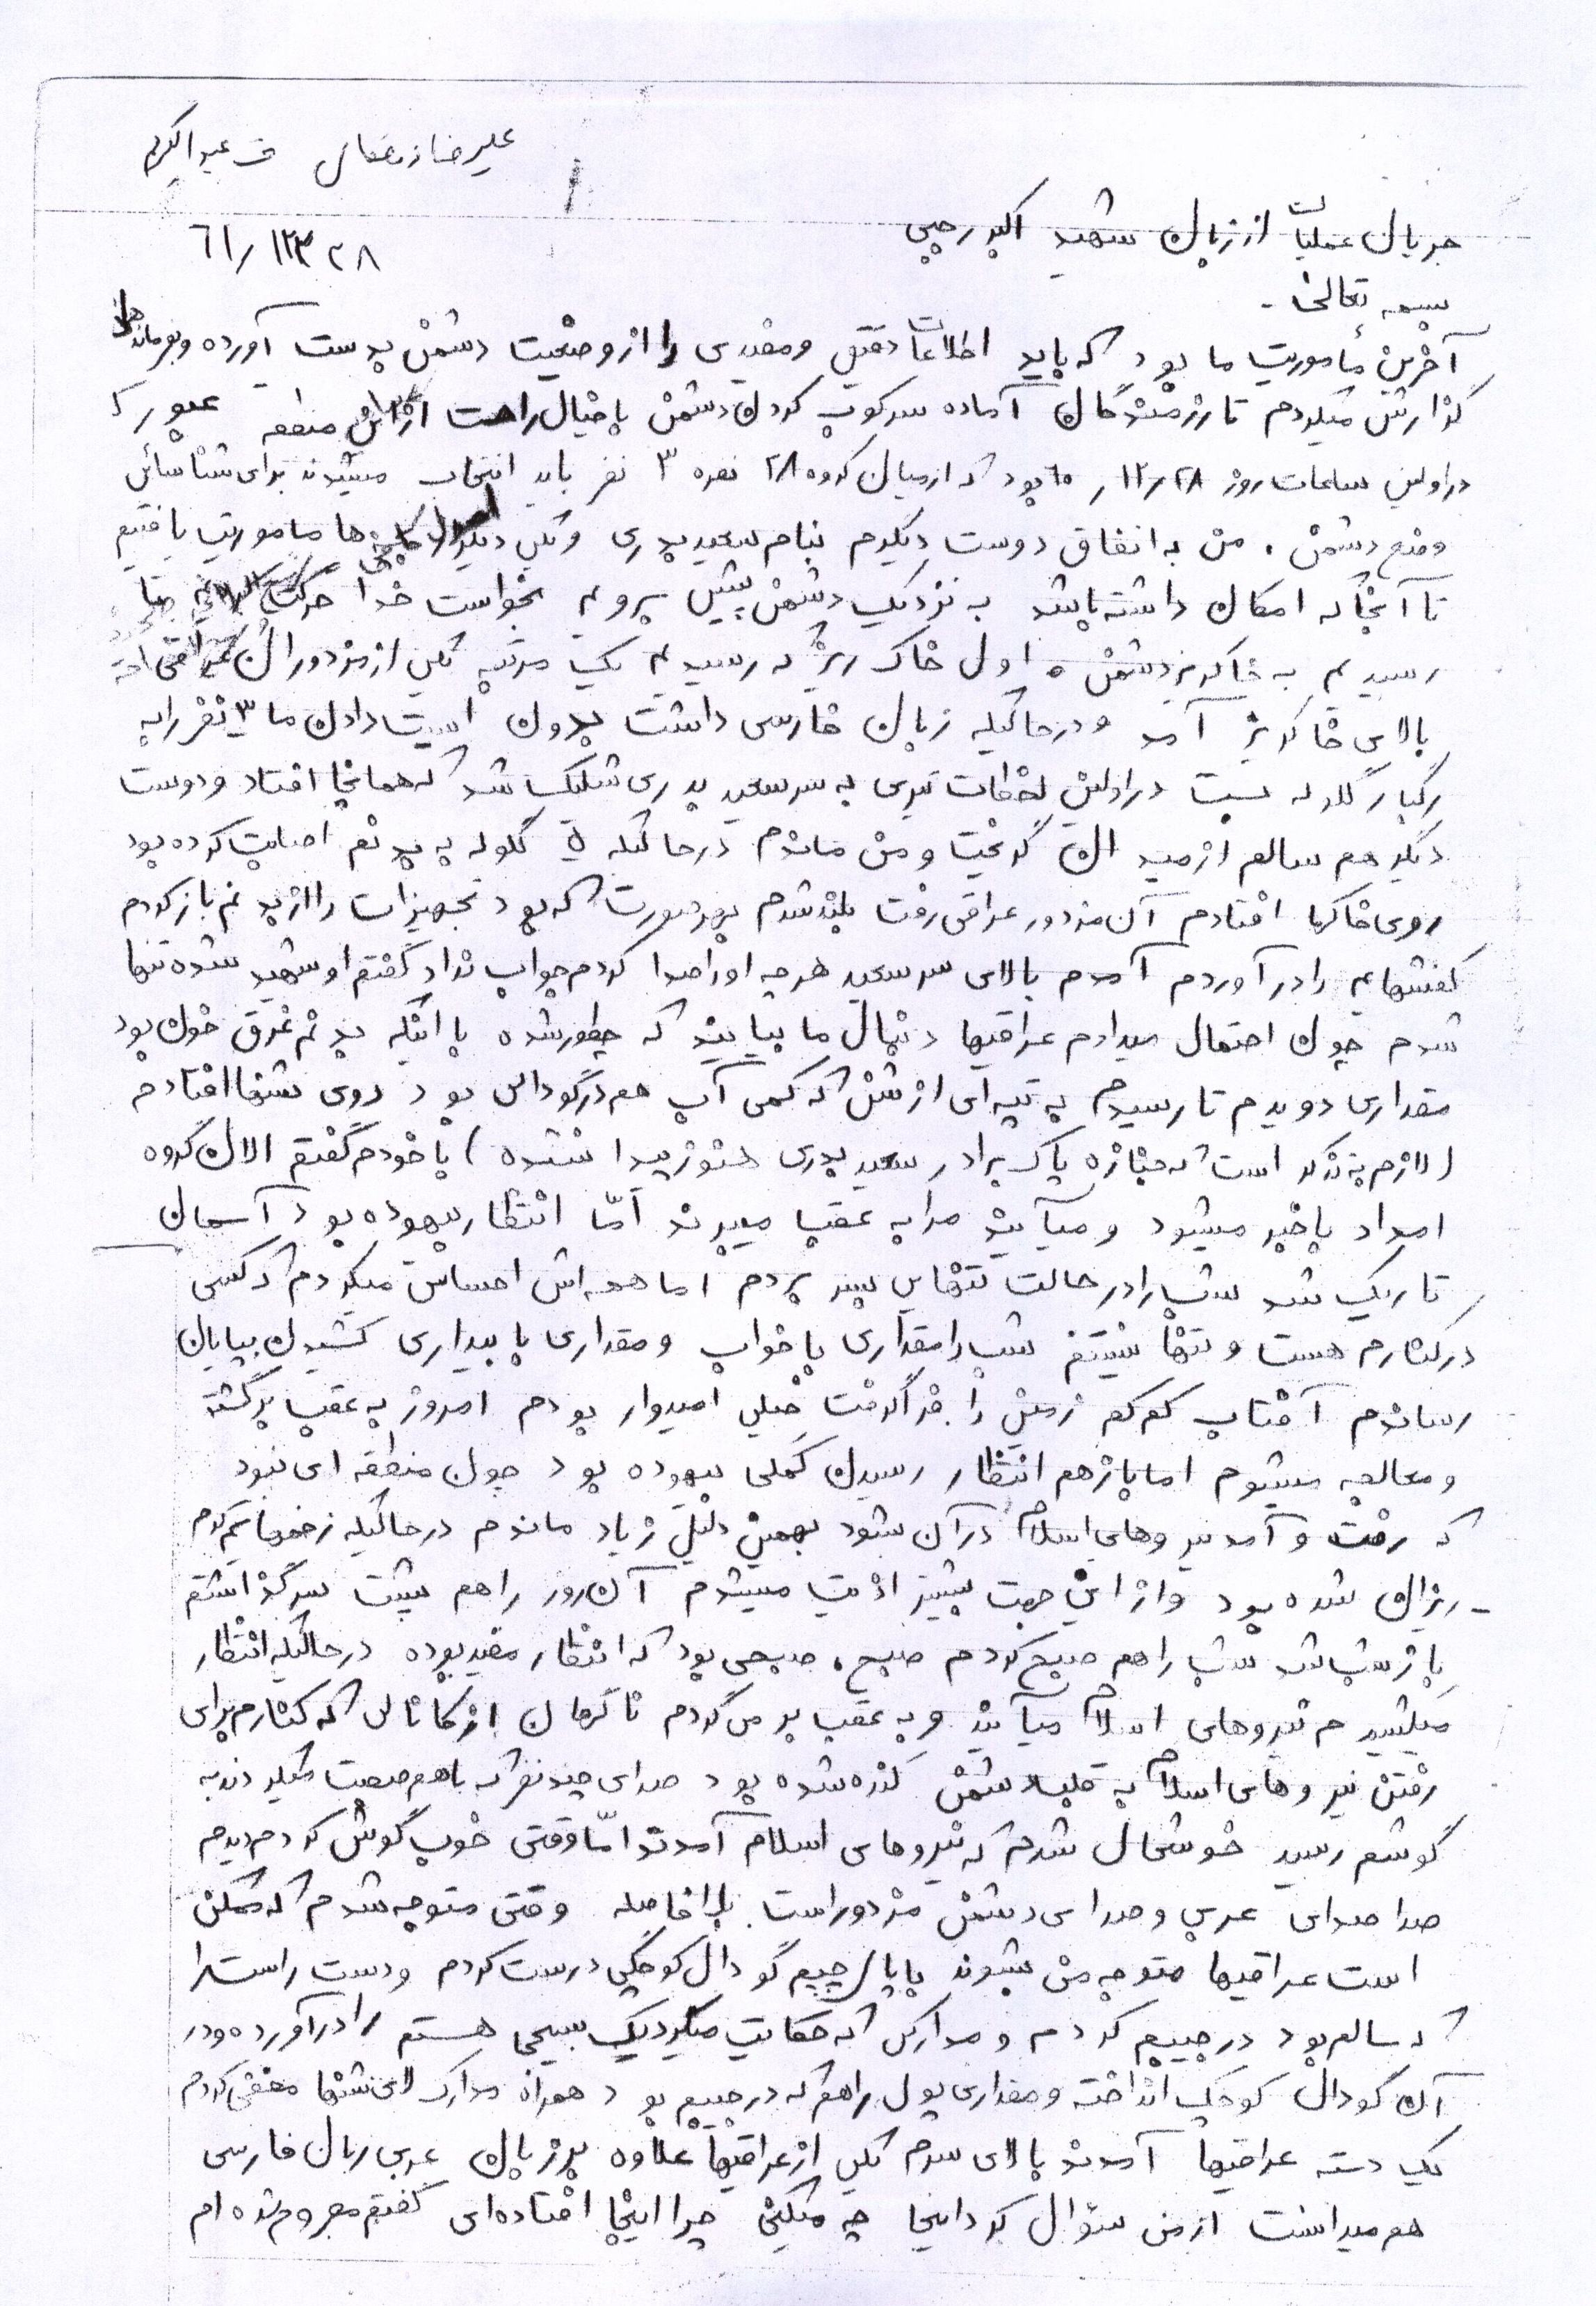 علیرضا رمضانی ف عبدالکریم
۱
جریان عملیات از زبان شهید اکبر رجبی
۶۱/۱۲۳۲۸
بسمه تعالی -
آخرین مأموریت ما بود که باید اطلاعات دقیق و مفیدی را از وضعیت دشمن بدست آورده و بفرمانده‌مان
گزارش میکردم تا رزمندگان آماده سرکوب کردن دشمن با خیال راحت از این منطقه عبور ک
در اولین ساعات روز ۱۲/۲۸ ر ۶۰ بود که از میان گروه ۲۸ نفره ۳ نفر باید انتخاب میشوند برای شناسائی
وضع دشمن . من به اتفاق دوست دیگرم بنام سعید بدری و یکی دیگر از ها ماموریت یافتیم
تا آنجا که امکان داشته باشد به نزدیک دشمن پیش برویم بخواست خدا حرکت تا
رسیدیم به خاکریز دشمن ، اول خاک ریز که رسیدیم یک مرتبه یکی از مزدوران عراقی
بالای خاکریز آمد و در حالیکه زبان فارسی داشت بدون ایست دادن ما ۳ نفر را به
رگبار گلوله بست در اولین لحظات تیری به سر سعید بدری شلیک شد که همانجا افتاد و دوست
دیگر هم سالم از میدان گریخت و من ماندم در حالیکه ۵ گلوله به بدنم اصابت کرده بود
روی خاکها افتادم آن مزدور عراقی رفت بلند شدم بهر صورت که بود تجهیزات را از بدنم باز کردم
کفشهایم را در آوردم آمدم بالای سر سعید هر چه او را صدا کردم جواب نداد گفتم او شهید شده تنها
شدم چون احتمال میدادم عراقیها دنبال ما بیایند که چطور شده با اینکه بدنم غرق خون بود
مقداری دویدم تا رسیدم به تپه ای از شن که کمی آب هم در گودالی بود روی شنها افتادم
( لازم بتذکر است که جنازه پاک برادر سعید بدری هنوز پیدا نشده ) با خودم گفتم الان گروه
امداد با خبر میشود و میآیند مرا به عقب میبرند امّا انتظار بیهوده بود آسمان
تاریک شد شب را در حالت تنهایی بسر بردم اما همه اش احساس میکردم که کسی
در کنارم هست و تنها نیستم شب را مقداری با خواب و مقداری با بیداری کشیدن بپایان
رساندم آفتاب کم کم زمین را فرا گرفت خیلی امیدوار بودم امروز به عقب برگشته
و معالجه میشوم اما باز هم انتظار رسیدن کمکی بیهوده بود چون منطقه ای نبود
که رفت و آمد نیروهای اسلام در آن بشود بهمین دلیل زیاد ماندم در حالیکه زخمهایم کرم
- ریزان شده بود و از این جهت بیشتر اذیت میشدم آن روز را هم پشت سر گذاشتم
باز شب شد شب را هم صبح کردم صبح ، صبحی بود که انتظار مفید بوده در حالیکه انتظار
میکشیدم نیروهای اسلام میآیند و به عقب بر می گردم ناگهان از کانالی که کنارم برای
رفتن نیروهای اسلام به قلب دشمن کنده شده بود صدای چند نفر که با هم صحبت میکردند به
گوشم رسید خوشحال شدم که نیروهای اسلام آمدند امّا وقتی خوب گوش کردم دیدم
صدا صدای عربی و صدای دشمن مزدور است بلافاصله وقتی متوجه شدم که ممکن
است عراقیها متوجه من بشوند با پای چپم گودال کوچکی درست کردم و دست راست را
که سالم بود در جیبم کردم و مدارکی که حکایت میکرد یک بسیجی هستم را در آورده و در
آن گودال کوچک انداخته و مقداری پول را هم که در جیبم بود همراه مدارک لای شنها مخفی کردم
یک دسته عراقیها آمدند بالای سرم یکی از عراقیها علاوه بر زبان عربی زبان فارسی
هم میدانست از من سئوال کرد اینجا چه میکنی چرا اینجا افتاده ای گفتم مجروح شده ام